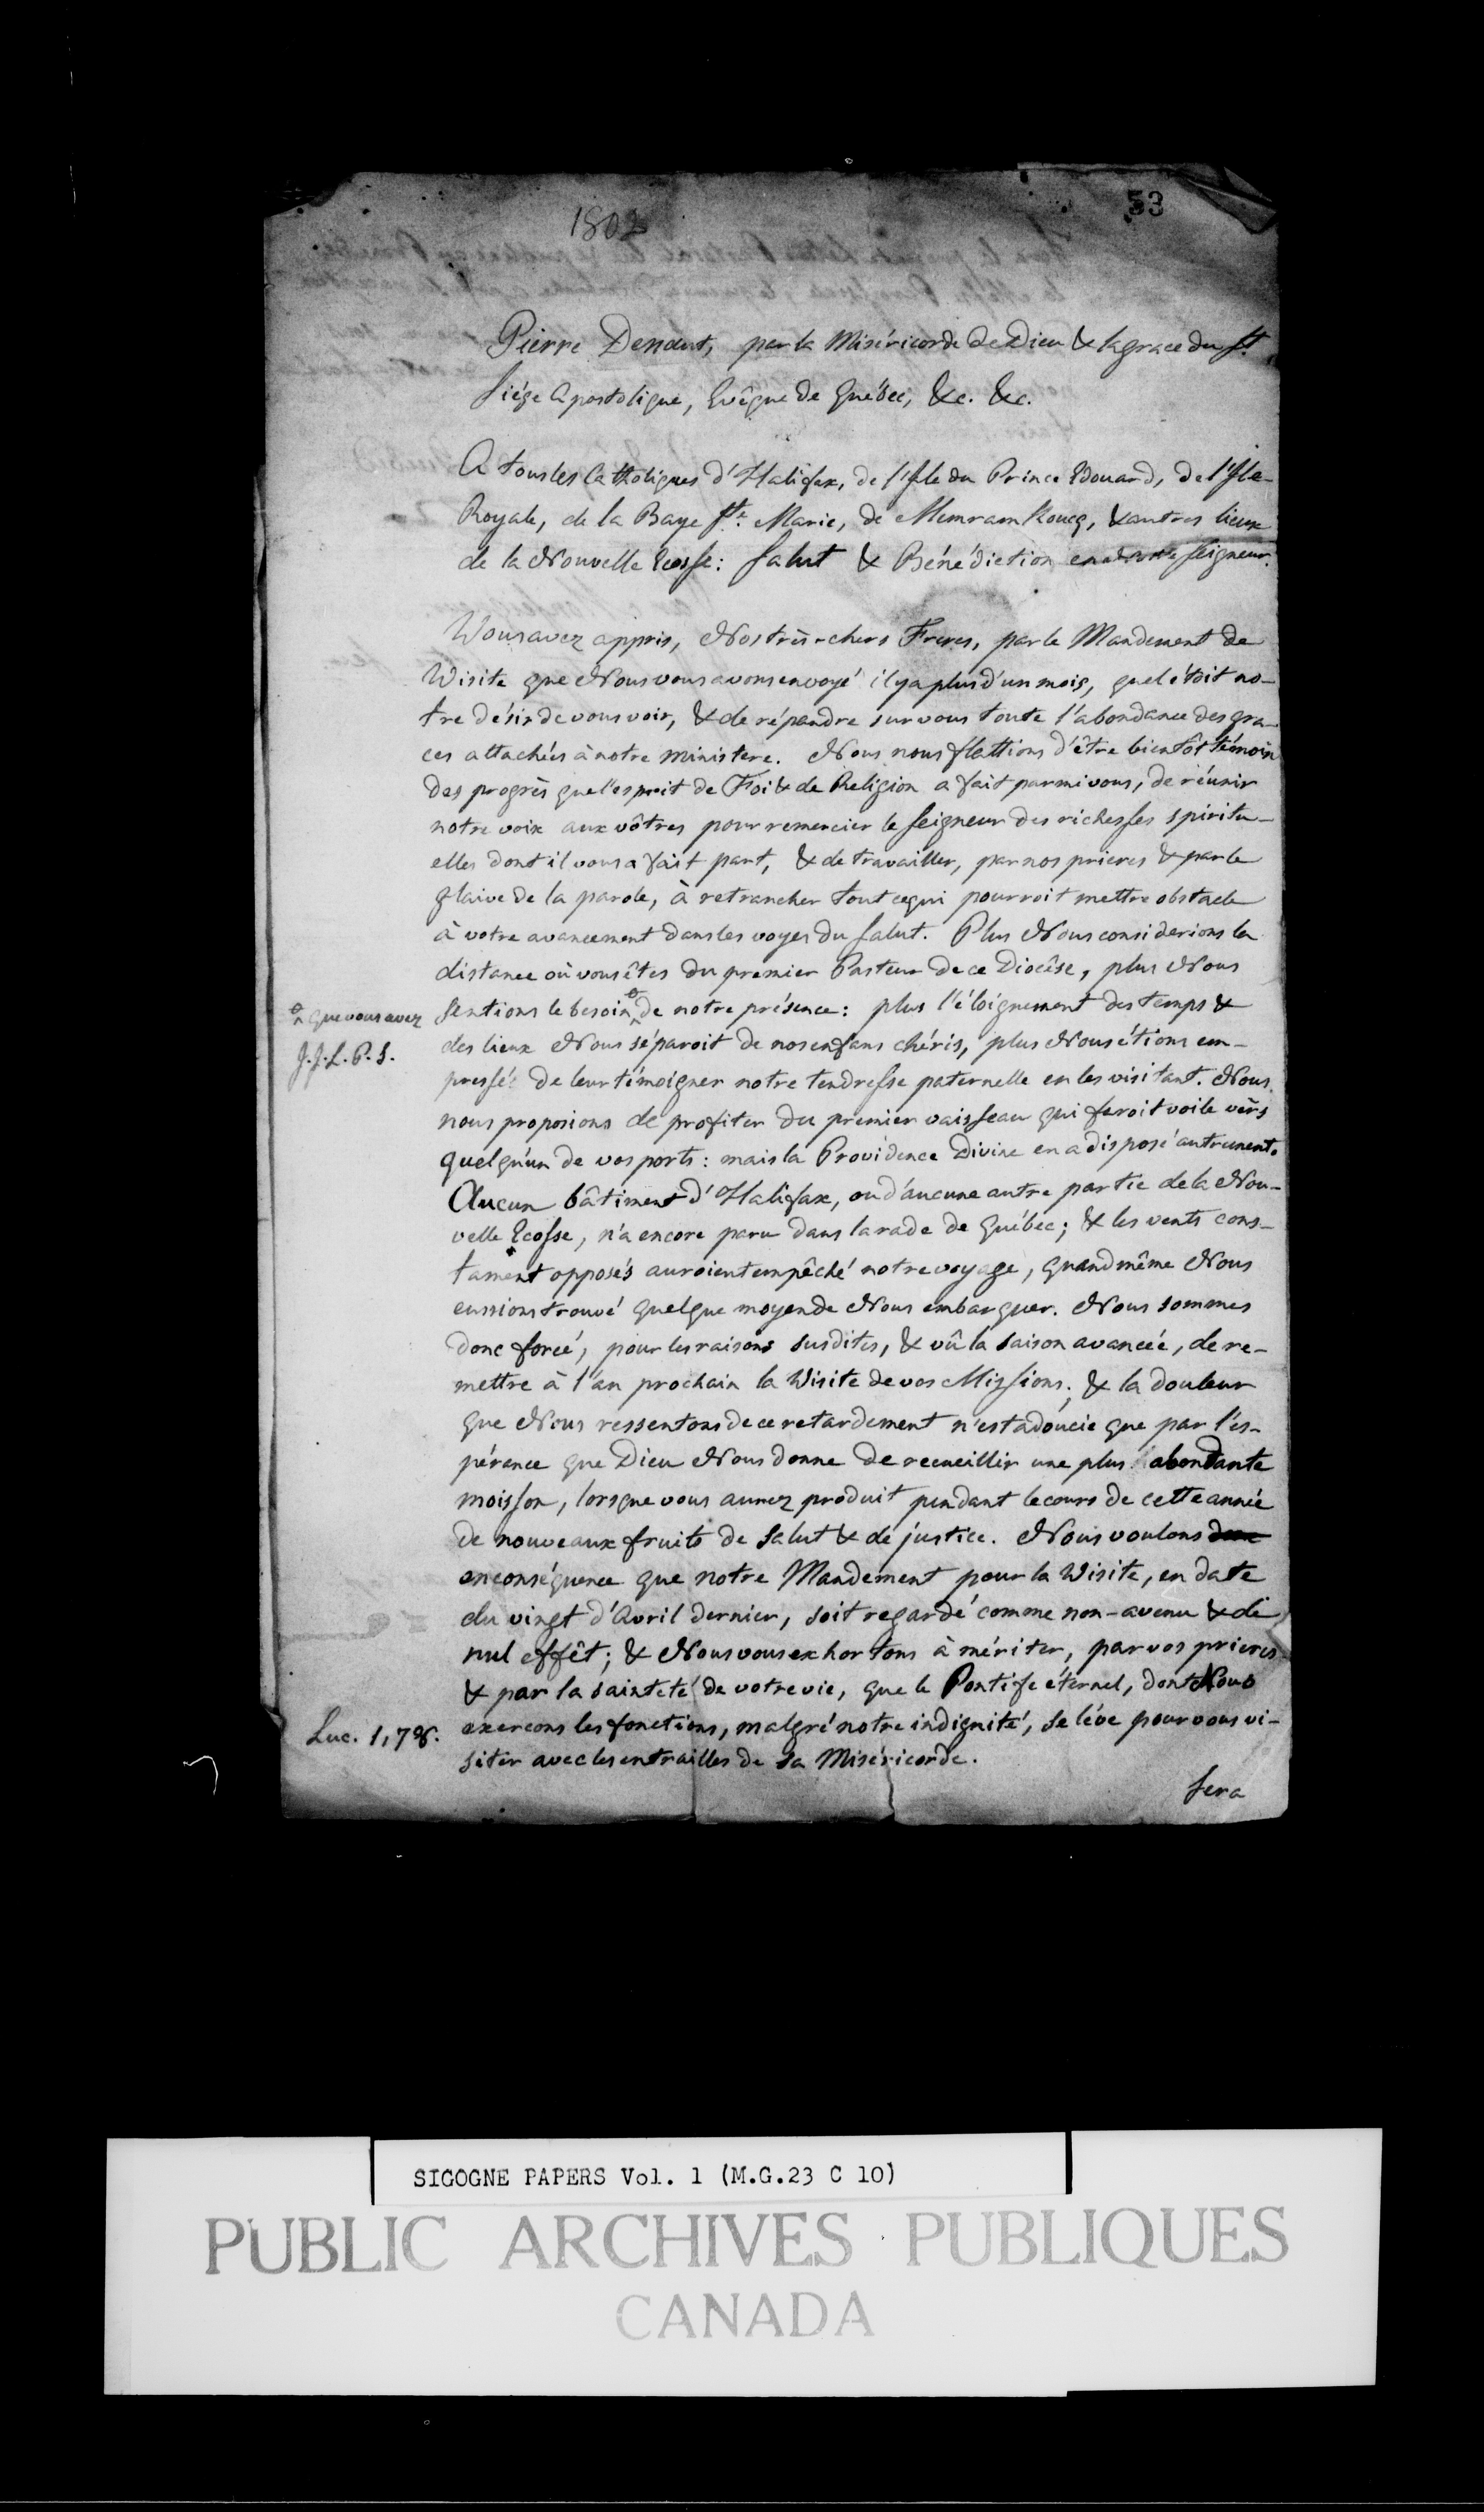 1802
53
Pierre Denaut, par la Miséricorde de Dieu & la grace du St.
Siége Apostolique, Evêque de Québec, &c. &c.
A tous les Catholiques d'Halifax, de l'Isle du Prince Edouard, de l'Isle-
Royale, de la Baye Ste. Marie, de Memramkoucq, & autres lieux
de la Nouvelle Ecosse: Salut & Bénédiction en Notre Seigneur.
Vous avez appris, Nos très-chers Freres, par le Mandement de
Visite que Nous vous avons envoyé il y a plus d'un mois, quel étoit no-
tre désir de vous voir, & de répandre sur vous toute l'abondance des gra-
ces attachées à notre ministere. Nous nous flattions d'être bientôt témoin
des progrès que l'esprit de Foi & de Religion a fait parmi vous, de réunir
notre voix aux vôtres pour remercier le Seigneur des richesses spiritu-
elles dont il vous a fait part, & de travailler, par nos prieres & par le
glaive de la parole, à retrancher tout ce qui pourroit mettre obstacle
à votre avancement dans les voyes du salut. Plus Nous considerions la
distance où vous êtes du premier Pasteur de ce Diocêse, plus Nous
sentions le besoin de notre présence: plus l'éloignement des temps &
que vous avez
J.J.L.P.S.
des lieux Nous séparoit de nos enfans chéris, plus Nous étions em-
pressés de leur témoigner notre tendresse paternelle en les visitant. Nous
nous proposions de profiter du premier vaisseau qui feroit voile vers
quelqu'un de vos ports: mais la Providence Divine en a disposé autrement.
Aucun bâtiment d'Halifax, ou d'aucune autre partie de la Nou-
velle Ecosse, n'a encore paru dans la rade de Québec; & les vents cons-
tament opposés auroient empêché notre voyage, quand même Nous
eussions trouvé quelque moyen de Nous embarquer. Nous sommes
donc forcé, pour les raisons susdites, & vû la saison avancée, de re-
mettre à l'an prochain la Visite de vos Missions; & la douleur
que Nous ressentons de ce retardement n'est adoucie que par l'es-
pérance que Dieu Nous donne de recueillir une plus abondante
moisson, lorsque vous aurez produit pendant le cours de cette année
de nouveaux fruits de salut & de justice. Nous voulons
en conséquence que notre Mandement pour la Visite, en date
du vingt d'Avril dernier, soit regardé comme non-avenu & de
nul effêt; & Nous vous exhortons à mériter, par vos prieres
& par la sainteté de votre vie, que le Pontife éternel, dont Nous
exercons les fonctions, malgré notre indignité, se léve pour vous vi-
Luc. 1,78.
siter avec les entrailles de sa Miséricorde.
Sera
SIGOGNE PAPERS Vol. 1 (M.G.23 C 10)
PUBLIC ARCHIVES PUBLIQUES
CANADA